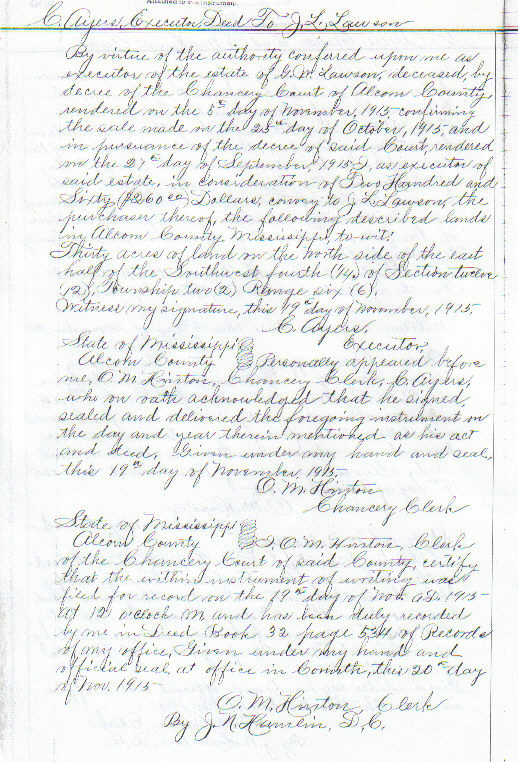 Attached to this Instrument.
C. Ayers, Executor, Deed To J. L. Lawson
By virtue of the authority conferred upon me as
executor of the estate of G. W. Lawson, deceased, by
decree of the Chancery Court of Alcorn County,
rendered on the 8th day of November, 1915 confirming
the sale made on the 25th day of October, 1915 and
in pursuance of the decree of said Court, rendered
on the 27th day of September, 1915 I, as executor of
said estate, in consideration of Two Hundred and
Sixty ($260 00) Dollars, convey to J. L. Lawson, the
purchaser thereof, the following described lands
in Alcorn County Mississippi, to-wit:
Thirty acres of land on the north side of the east
half of the Southwest fourth (1/4) of Section twelve
(12), Township two (2) Range six (6).
Witness my signature, this 19th day of November, 1915.
C. Ayers,
Executor,
State of Mississippi
Alcorn County Personally appeared before
me, O. M. Hinton, Chancery Clerk, C. Ayers,
who on oath acknowledged that he signed
sealed and delivered the foregoing instrument on
the day and year therein mentioned as his act
and deed, Given under my hand and seal,
this 19th day of November, 1915-
O. M. Hinton
Chancery Clerk
State of Mississippi
Alcorn County I, O. M. Hinton, Clerk
of the Chancery Court of said County, certify
that the within instrument of writing was
filed for record on the 19th day of Nov. A.D. 1915-
at 12 o'clock M and has been duly recorded
by me in Deed Book 32 page 534 of Records
of my office, Given under my hand and
official seal, at office in Corinth, this 20th day
of Nov. 1915-
O. M. Hinton, Clerk
By J. N. Hamlin, D. C.